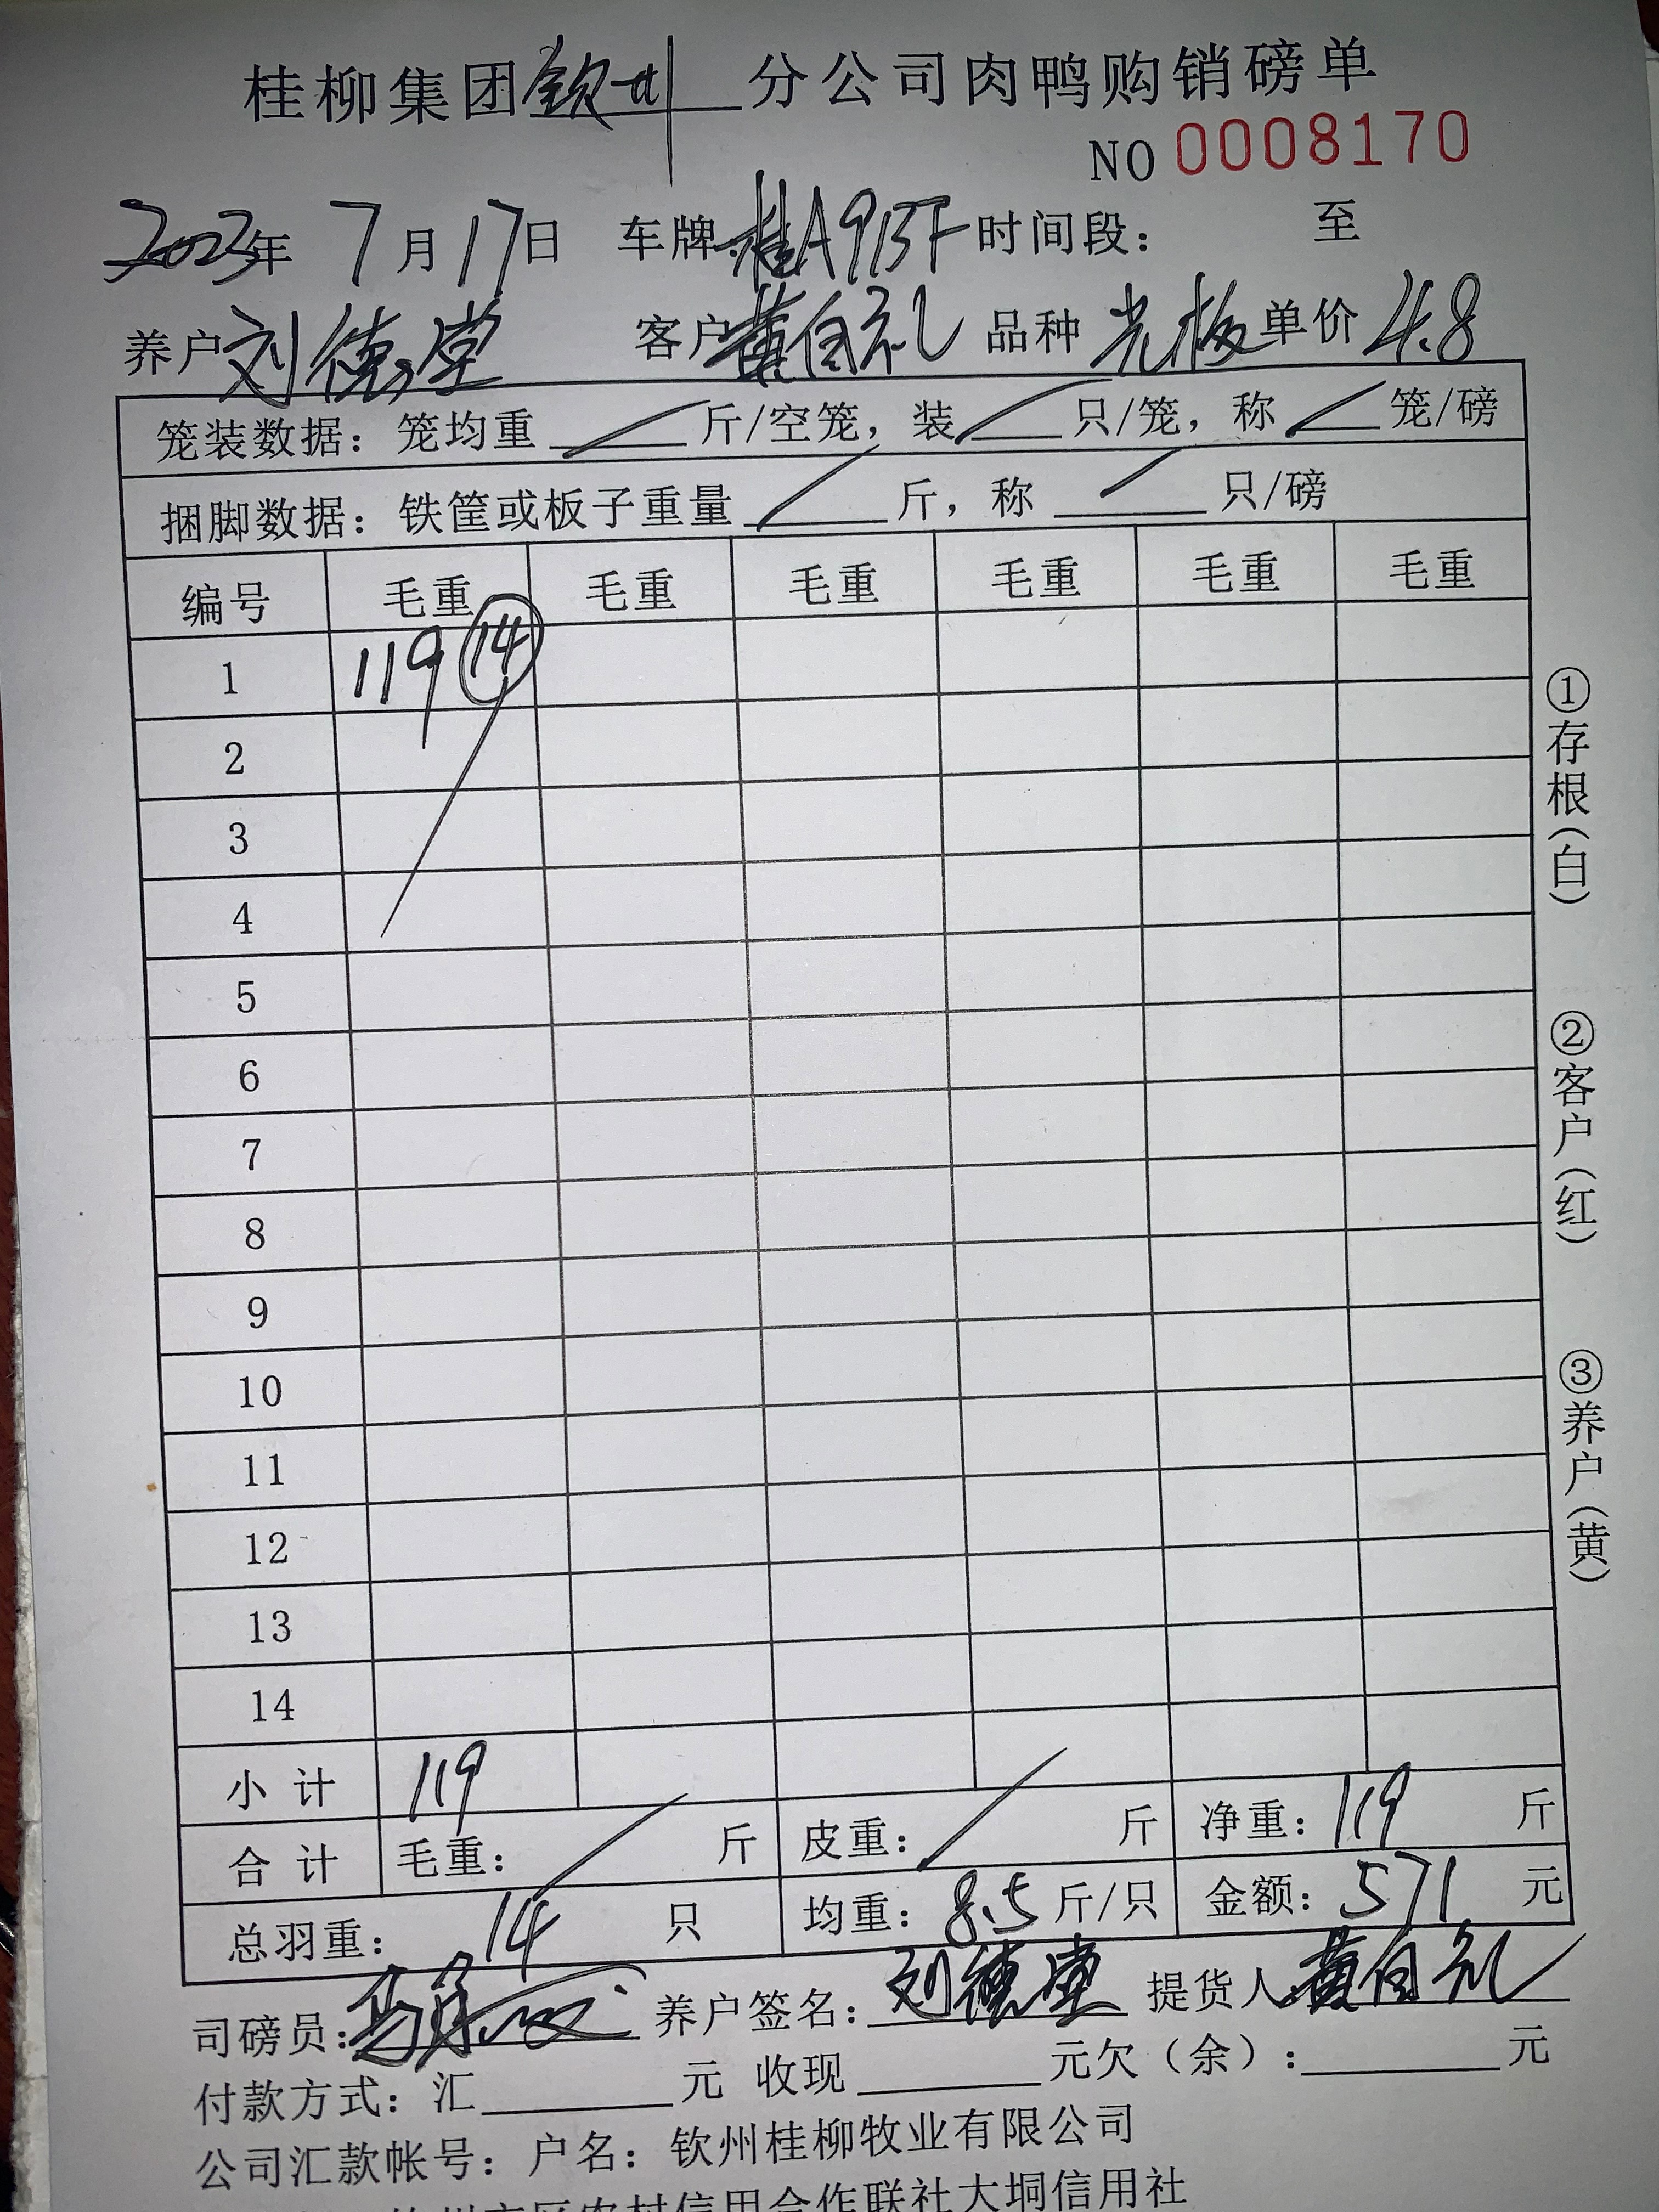 桂柳集团钦州分公司肉鸭购销磅单
NO 0008170
2023年 7月17日 车牌:桂A913F 时间段: 至
养户刘德堂 客户黄自礼 品种 光板 单价 4.8
笼装数据:笼均重 / 斤/空笼,装 / 只/笼,称 / 笼/磅
捆脚数据:铁筐或板子重量 / 斤,称 / 只/磅
编号 毛重 毛重 毛重 毛重 毛重 毛重
1 119 14
2
3
4
5
6
7
8
9
10
11
12
13
14
小计 119
合计 毛重: / 斤 皮重: / 斤 净重:119 斤
总羽重: 14 只 均重:8.5斤/只 金额:571 元
司磅员: 养户签名:刘德堂 提货人:黄自礼
付款方式:汇 元 收现 元欠(余): 元
公司汇款帐号:户名:钦州桂柳牧业有限公司
农村信用合作联社大垌信用社
①存根(白)
②客户(红)
③养户(黄)